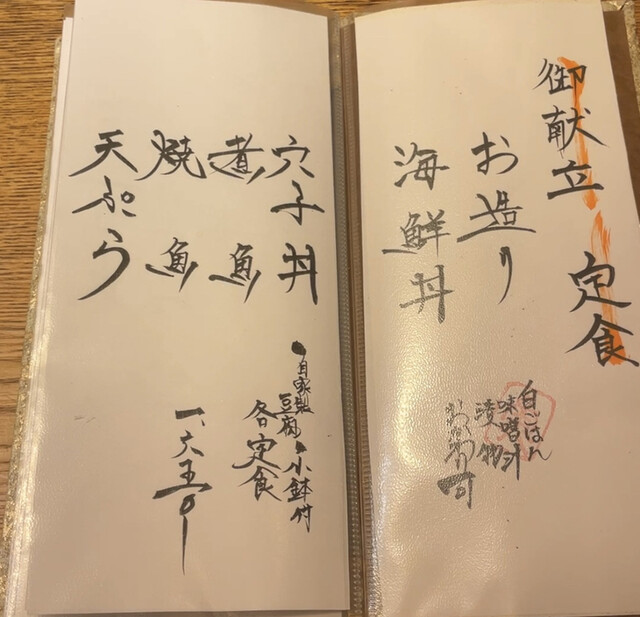 御献立 定食
お造り
海鮮丼
白ごはん
味噌汁
漬物
おかわり可
穴子丼
煮魚
焼魚
天ぷら
●自家製豆腐●小鉢付
各定食
一、六五〇ー